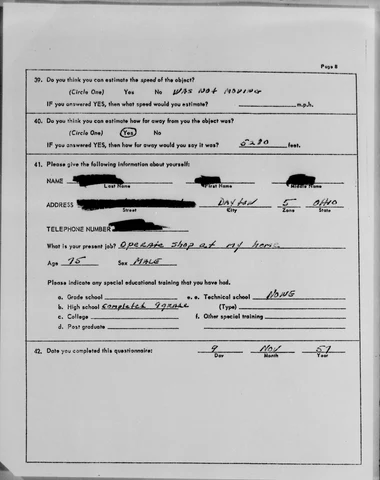 Page 8
39. Do you think you can estimate the speed of the object?
(Circle One) Yes No WAS NOT MOVING
IF you answered YES, then what speed would you estimate? m.p.h.
40. Do you think you can estimate how far away from you the object was?
(Circle One) Yes No
IF you answered YES, then how far away would you say it was? 5280 feet.
41. Please give the following information about yourself:
NAME
Last Name First Name Middle Name
ADDRESS DAYTON 5 OHIO
Street City Zone State
TELEPHONE NUMBER
What is your present job? OPERATE SHOP AT MY HOME
Age 75 Sex MALE
Please indicate any special educational training that you have had.
a. Grade school e. e. Technical school NONE
b. High school COMPLETED 9 GRADE (Type)
c. College f. Other special training
d. Post graduate
42. Date you completed this questionnaire: 9 NOV 57
Day Month Year